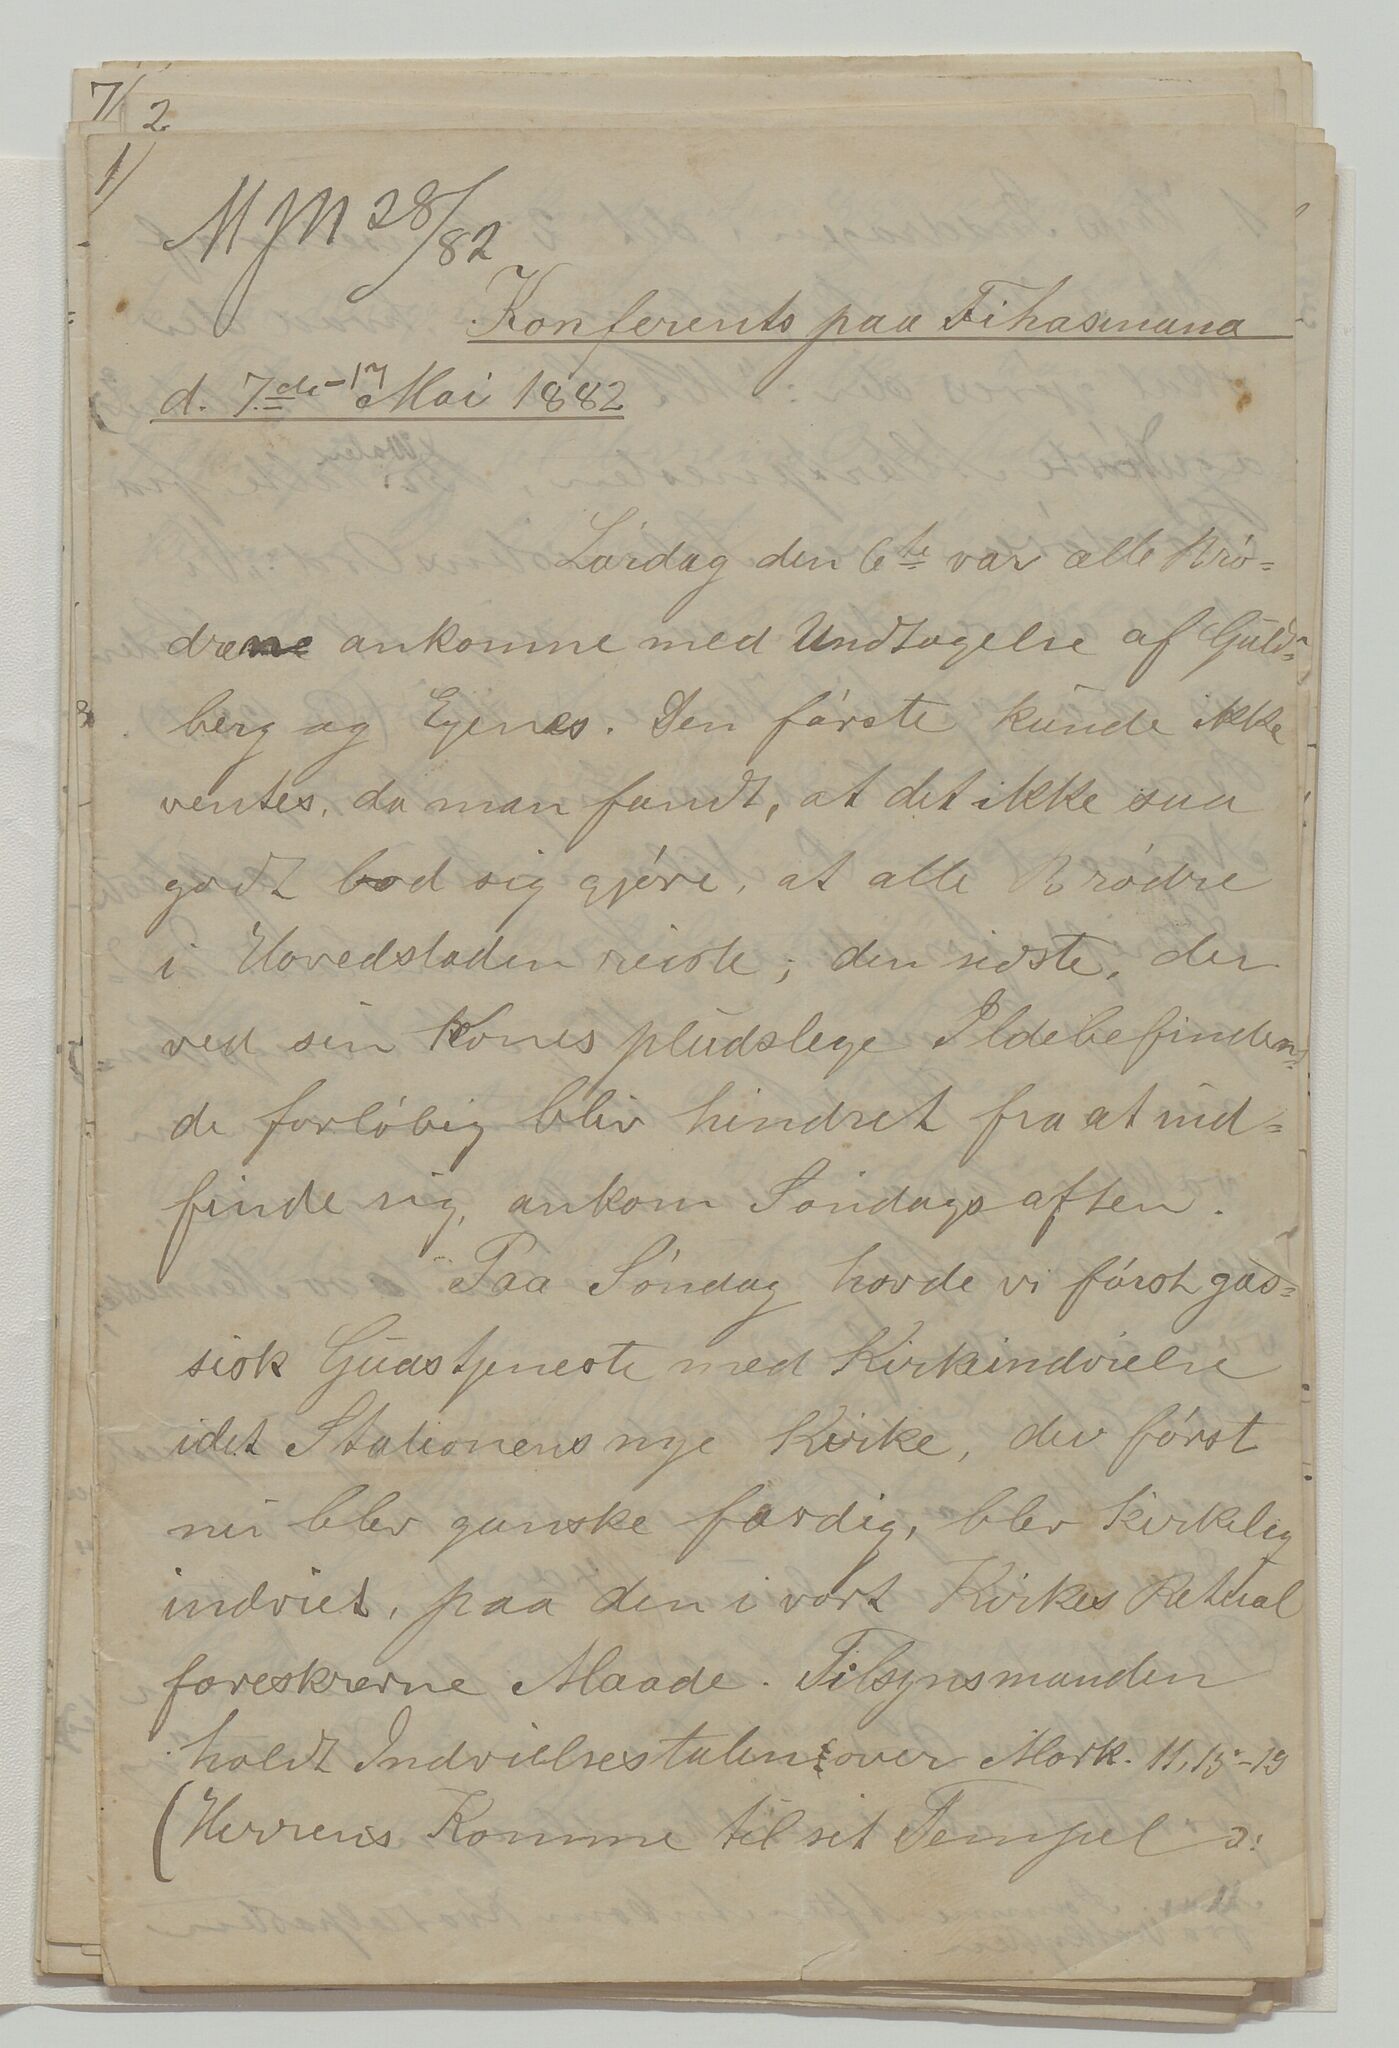 7/ 2.
1/
MJM 28/82
Konferents paa Fihasinana
d. 7de-17 Mai 1882
Lørdag den 6te var alle Brø-
drene ankomne med Undtagelse af Guld-
berg og Egenæs. Den første kunde ikke
ventes, da man fandt, at det ikke saa
godt lod sig gjøre, at alle Brødre
i Hovedstaden reiste; den sidste, der
ved sin Kones pludslege Ildebefinden-
de forløbig blev hindret fra at ind-
finde sig, ankom Søndags aften.
Paa Søndag havde vi først gas-
sisk Gudstjeneste med Kirkeindvielse
idet Stationens nye Kirke, der først
nu blev ganske færdig, blev kirkelig
indviet, paa den i vort Kirkes Retual
foreskrevne Maade. Tilsynsmanden
holdt Indvielsestalen over Mark. 11,15-19
(Herrens Komme til sit Tempel ɔ: